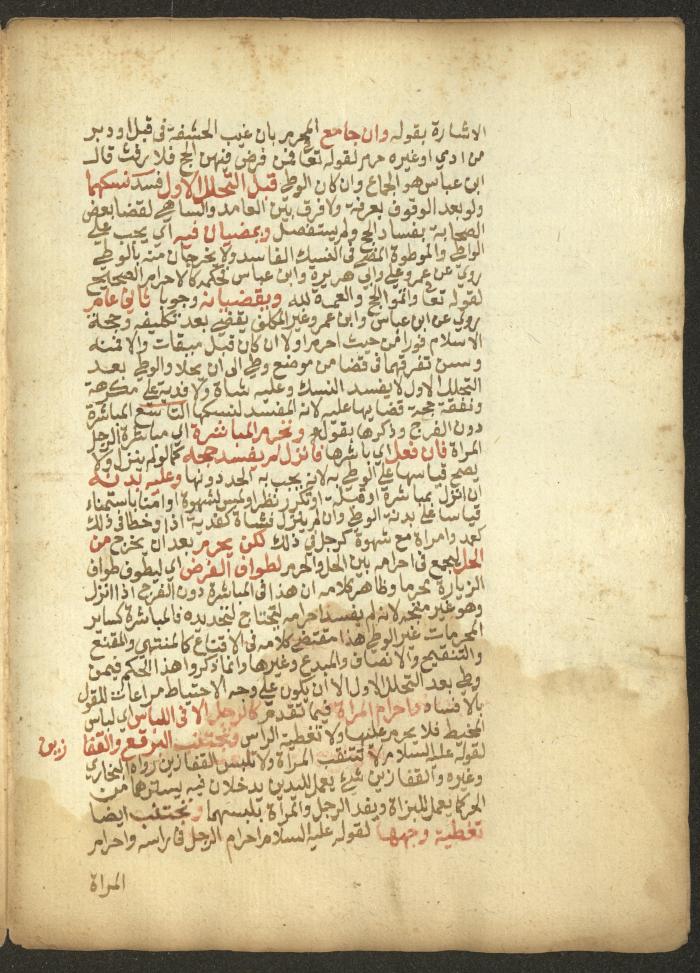 الاشارة بقوله وان جامع المحرم بان غيب الحشفة في قبل او دبر
من ادمي او غيره حرم لقوله تعا فمن فرض فيهن الحج فلا رفث قال
ابن عباس هو الجماع وان كان الوطي قبل التحلل الاول فسد نسكهما
ولو بعد الوقوف بعرفة ولا فرق بين العامد والساهي لقضا بعض
الصحابة بفساد الحج ولم يستفصل ويمضيان فيه اي يجب على
الواطي والموطوة المضي في النسك الفاسد ولا يخرجان منه بالوطي
روي عن عمر وعلي وابي هريرة وابن عباس فحكمه كالاحرام الصحيح
لقوله تعا واتموا الحج والعمرة لله ويقضيانه وجوبا ثاني عام
روي عن ابن عباس وابن عمر وغير المكلف يقضي بعد تكليفه وحجة
الاسلام فورا من حيث احرم اولا ان كان قبل ميقات والا فمنه
وسن تفرقهما في قضا من موضع وطي الى ان يحلا والوطي بعد
التحلل الاول لا يفسد النسك وعليه شاة ولا فدية على مكرهة
ونفقة حجة قضايها عليه لانه المفسد لنسكها التاسع المباشرة
دون الفرج وذكرها بقوله وتحرم المباشرة اي مباشرة الرجل
المراة فان فعل اي باشرها فانزل لم يفسد حجه كما لو لم ينزل ولا
يصح قياسها على الوطي به لانه يجب به الحد دونها وعليه بدنة
ان انزل بمباشرة او قبلة او تكرر نظر او لمس لشهوة او امنا باستمناء
قياسا على بدنة الوطي وان لم ينزل فشاة كفدية اذا وخطا في ذلك
كعمد وامراة مع شهوة كرجل في ذلك لكن يحرم بعد ان يخرج من
الحل ليجمع في احرامه بين الحل والحرم لطواف الفرض اي ليطوف طواف
الزيارة محرما وظاهر كلامه ان هذا في المباشرة دون الفرج اذا انزل
وهو غير متجه لانه لم يفسد احرامه لنحتاج لتجديده فالمباشرة كساير
المحرمات غير الوطي هذا مقتضى كلامه في الاقناع كالمنتهى والمقنع
والتنقيح والانصاف والمبدع وغيرها وانما ذكروا هذا الحكم فيمن
وطي بعد التحلل الاول الا ان يكون على وجه الاحتياط مراعاة للقول
بالافساد واحرام المراة فيما تقدم كالرجل الا في اللباس اي لباس
المخيط فلا يحرم عليها ولا تغطية الراس وتجتنب البرقع والقفا زين
لقوله عليه السلام لا تنتقب المراة ولا تلبس القفازين رواه البخاري
وغيره والقفازين شيء يعمل لليدين يدخلان فيه يسترهما من
الحر كما يعمل للبزاة ويفد الرجل والمراة بلبسهما وتجتنب ايضا
تغطية وجهها لقوله عليه السلام احرام الرجل في راسه واحرام
المراة